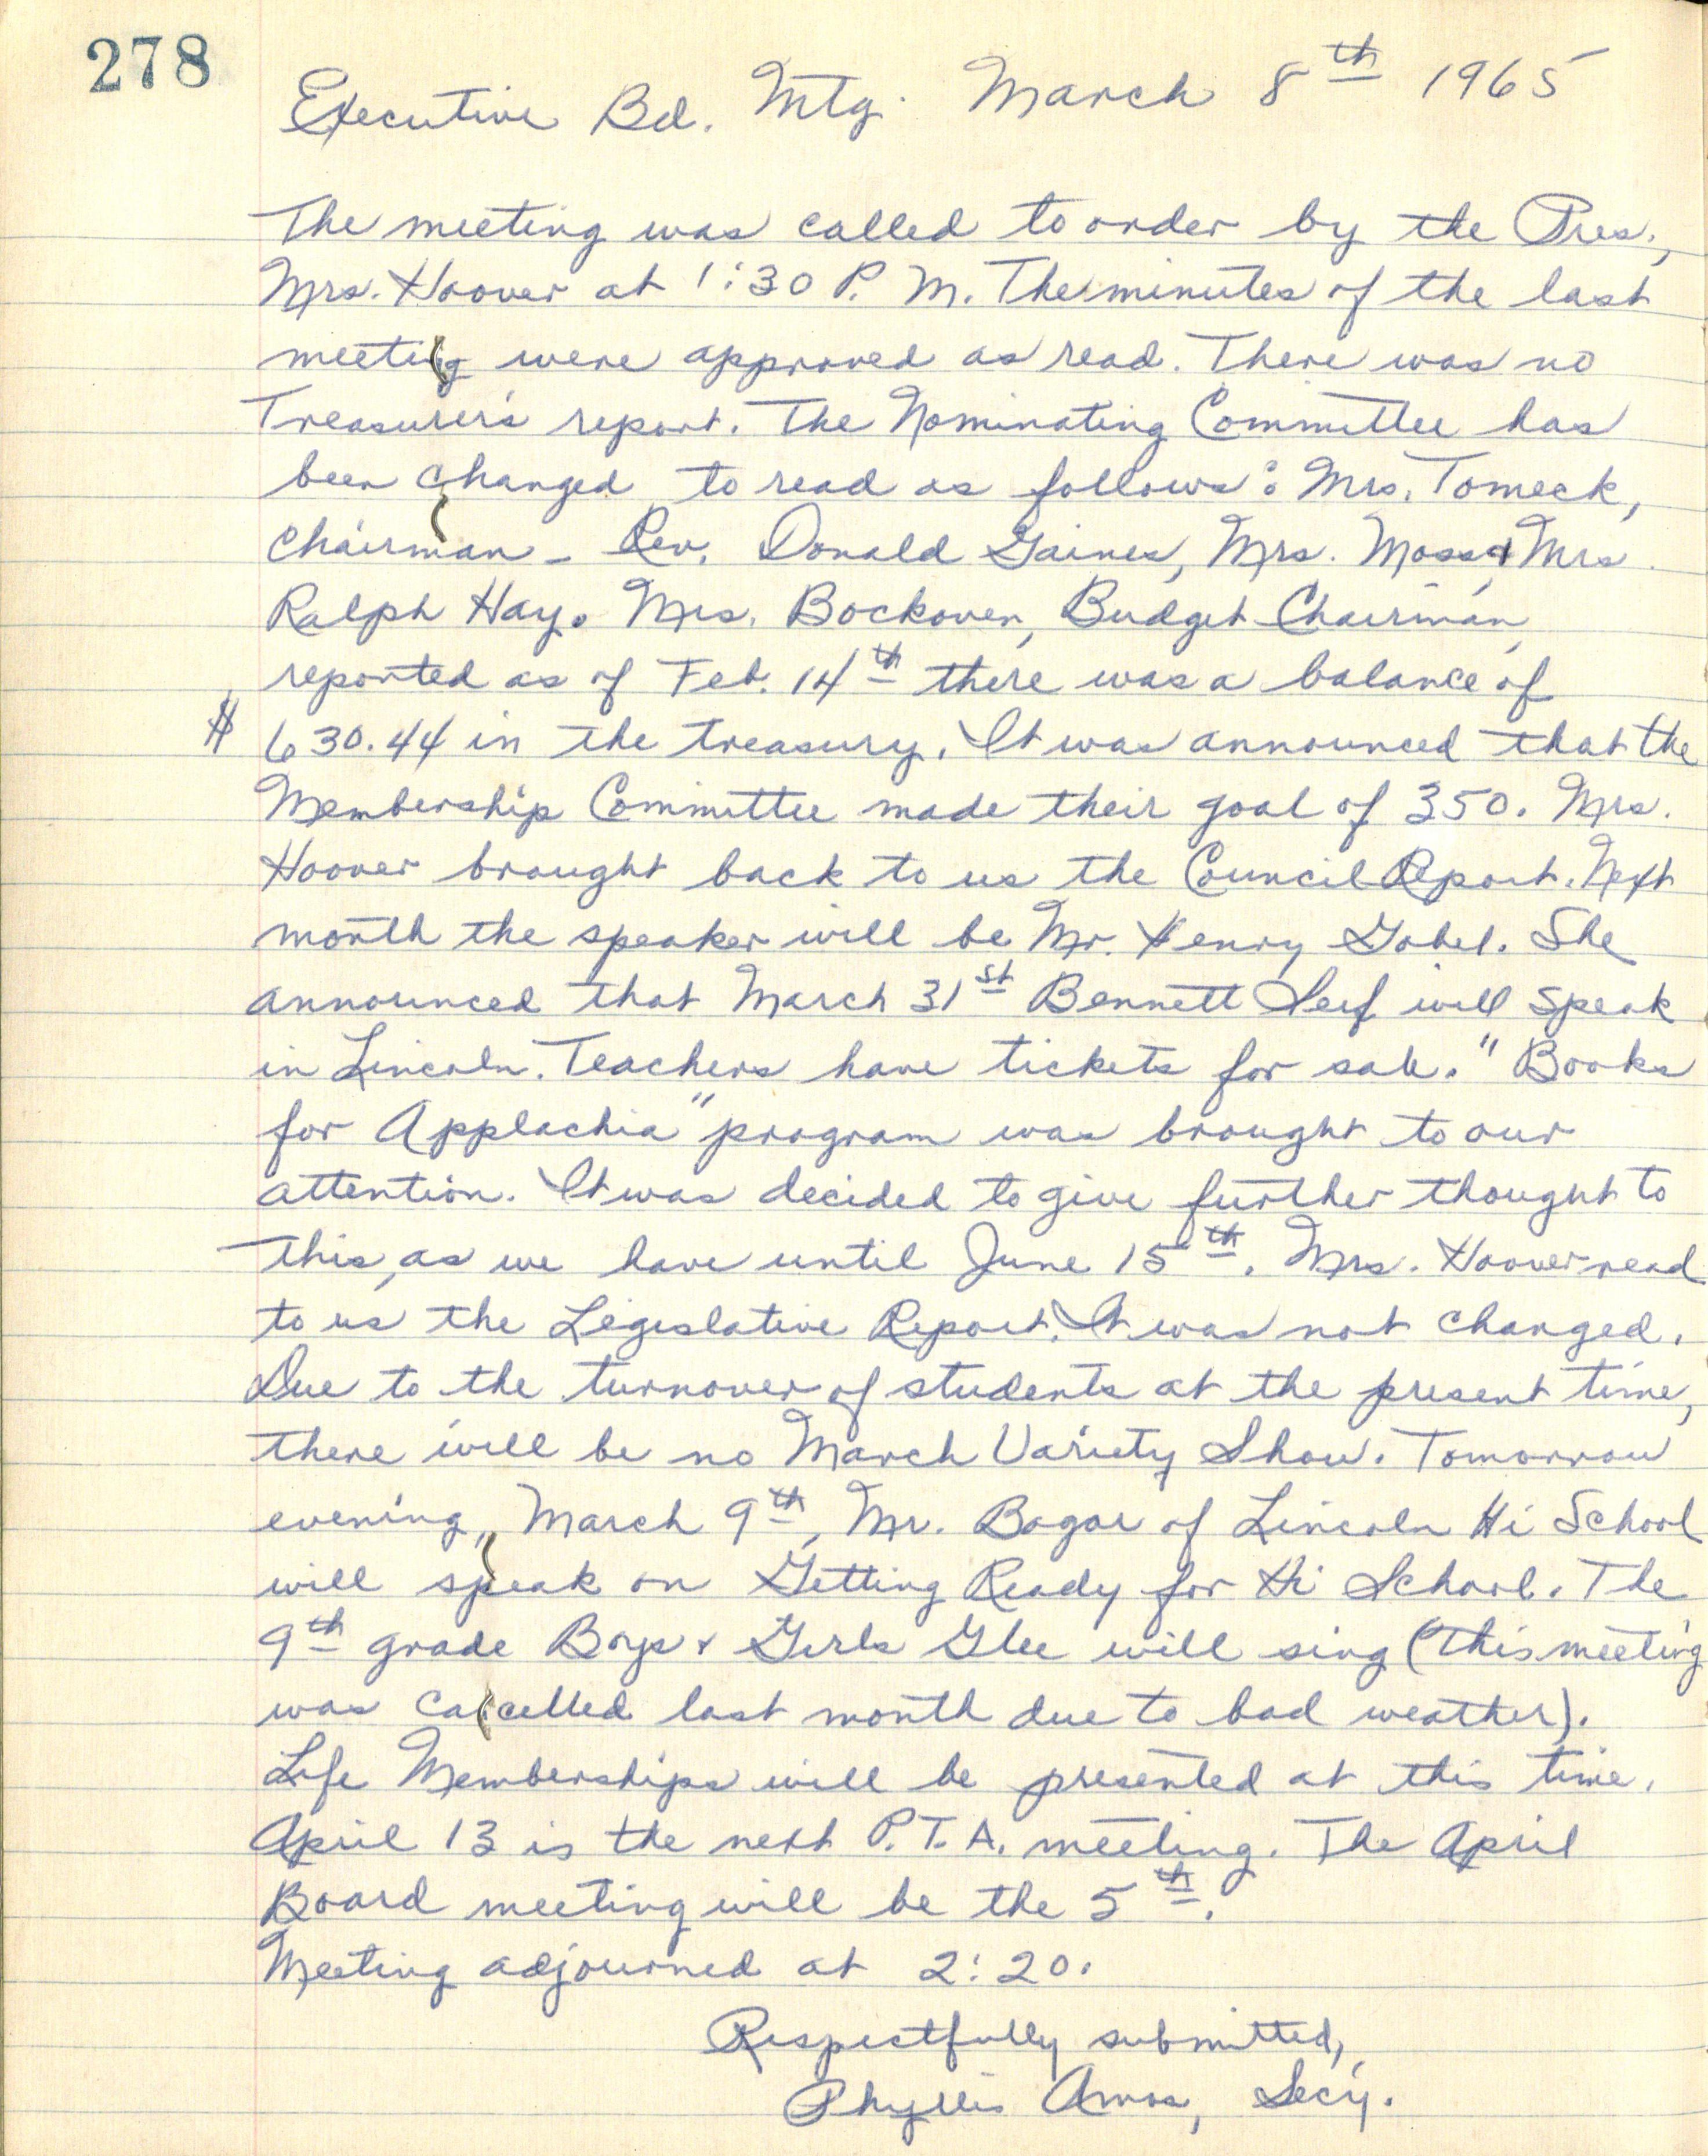 278
Executive Bd. Mtg. March 8th 1965
The meeting was called to order by the Pres.,
Mrs. Hoover at 1:30 P. M. The minutes of the last
meeting were approved as read. There was no
Treasurer's report. The Nominating Committee has
been changed to read as follows: Mrs. Tomeck,
Chairman - Rev. Donald Gaines, Mrs. Moss & Mrs.
Ralph Hay. Mrs. Bockoven, Budget Chairman,
reported as of Feb. 14th there was a balance of
$ 630.44 in the treasury. It was announced that the
Membership Committee made their goal of 350. Mrs.
Hoover brought back to us the Council Report. Next
month the speaker will be Mr. Henry Gobel. She
announced that March 31st Bennett Serf will speak
in Lincoln. Teachers have tickets for sale. "Books
for Applachia" program was brought to our
attention. It was decided to give further thought to
this, as we have until June 15th. Mrs. Hoover read
to us the Legislative Report. It was not changed.
Due to the turnover of students at the present time,
there will be no March Variety Show. Tomorrow
evening, March 9th, Mr. Bogar of Lincoln Hi School
will speak on Getting Ready for Hi School. The
9th grade Boys & Girls Glee will sing (This meeting
was cancelled last month due to bad weather).
Life Memberships will be presented at this time.
April 13 is the next P.T.A. meeting. The April
Board meeting will be the 5th.
Meeting adjourned at 2:20.
Respectfully submitted,
Phyllis Amos, Secy.